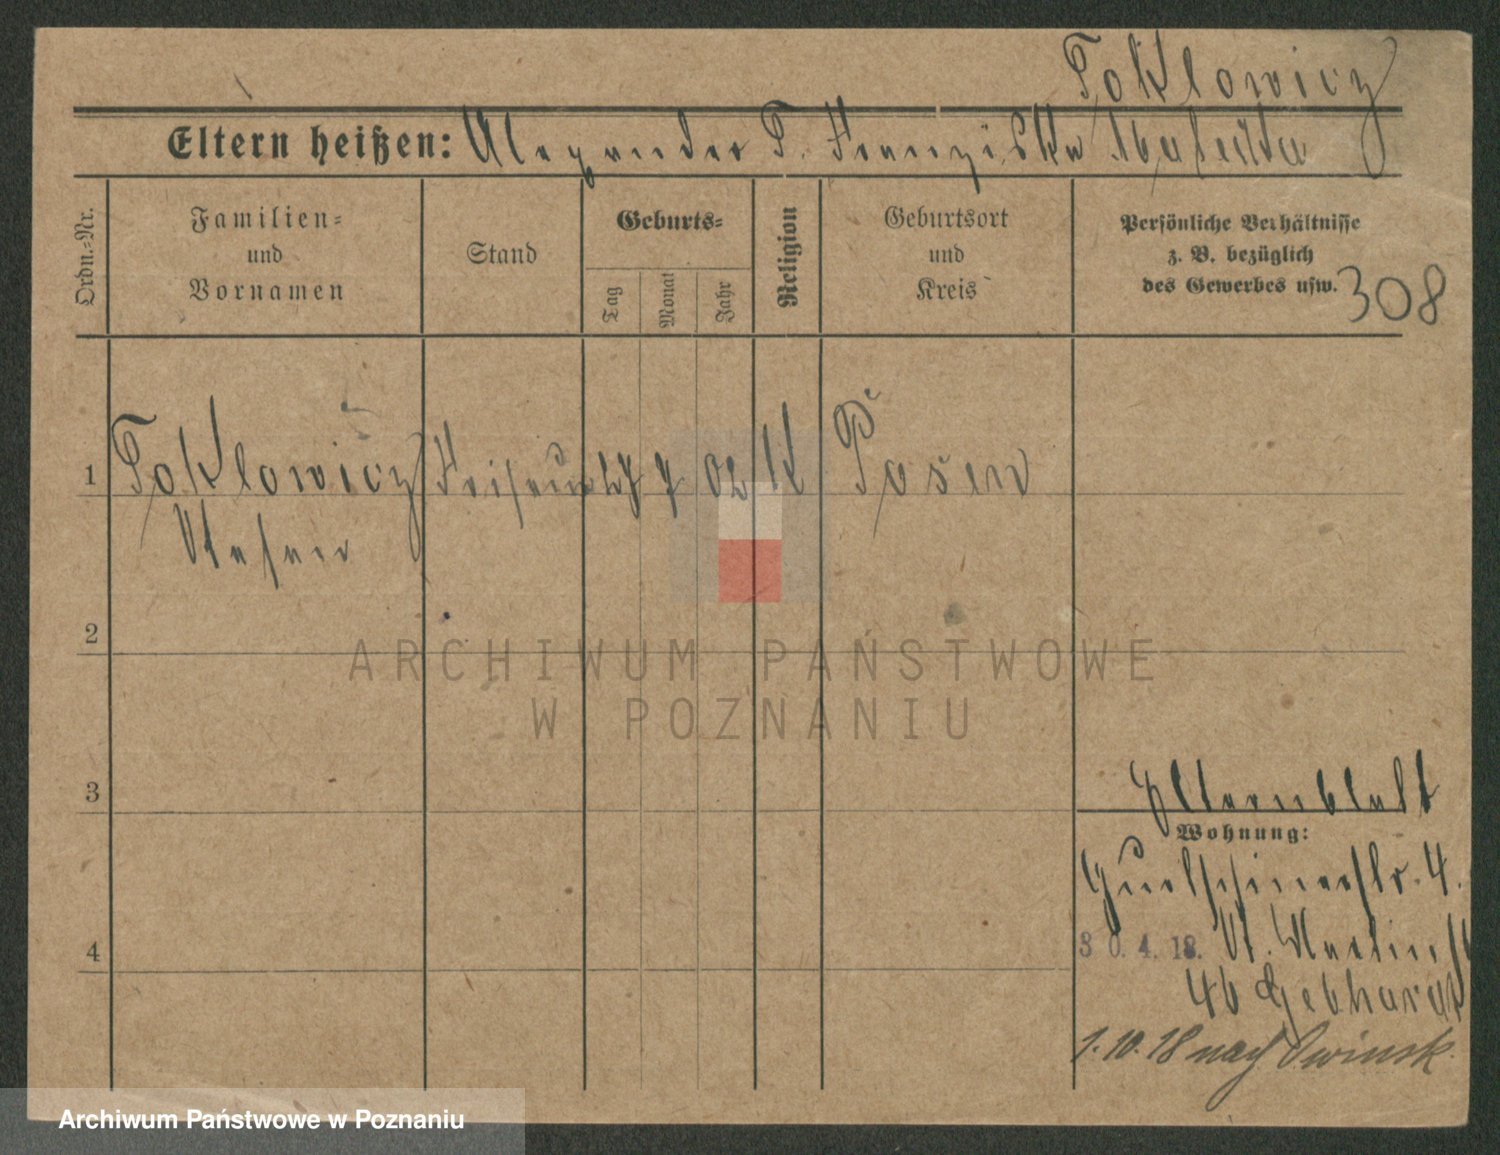 Toklowicz
Eltern heißen: Alexander T. Franziska
Ordn.=Nr.
Familien=
und
Vornamen
Stand
Geburts=
Tag
Monat
Jahr
Religion
Geburtsort
und
Kreis
Persönliche Verhältnisse
z. B. bezüglich
des Gewerbes usw.
308
1 Toklowicz 27 7 02 K Posen
Stefan
2
3
4
Elternblatt
Wohnung:
4.
30. 4. 18. St. Martinstr
46 Gebhardt
1. 10. 18 nach Owinsk.
ARCHIWUM PAŃSTWOWE
W POZNANIU
Archiwum Państwowe w Poznaniu